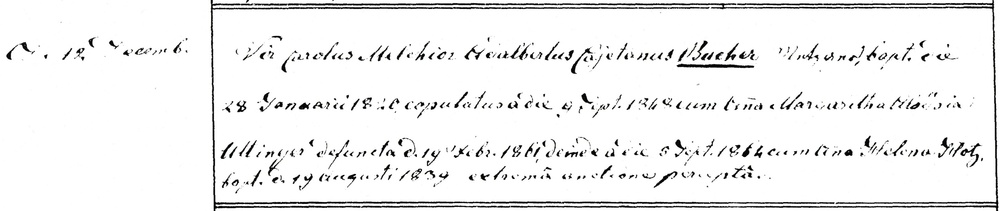 D. 12 Decemb.
Vir Carolus Melchior Adalbertus Cajetanus Bucher bapt. die
28 Januarii 1820, copulatus a die 9 Sept. 1848 cum Margaritha Aloisia
Uttinger defuncta d. 19 Febr. 1861, deinde a die 5 Sept. 1864 cum Helena Hotz,
bapt. d. 19 augusti 1839 extremâ unctione perceptâ.